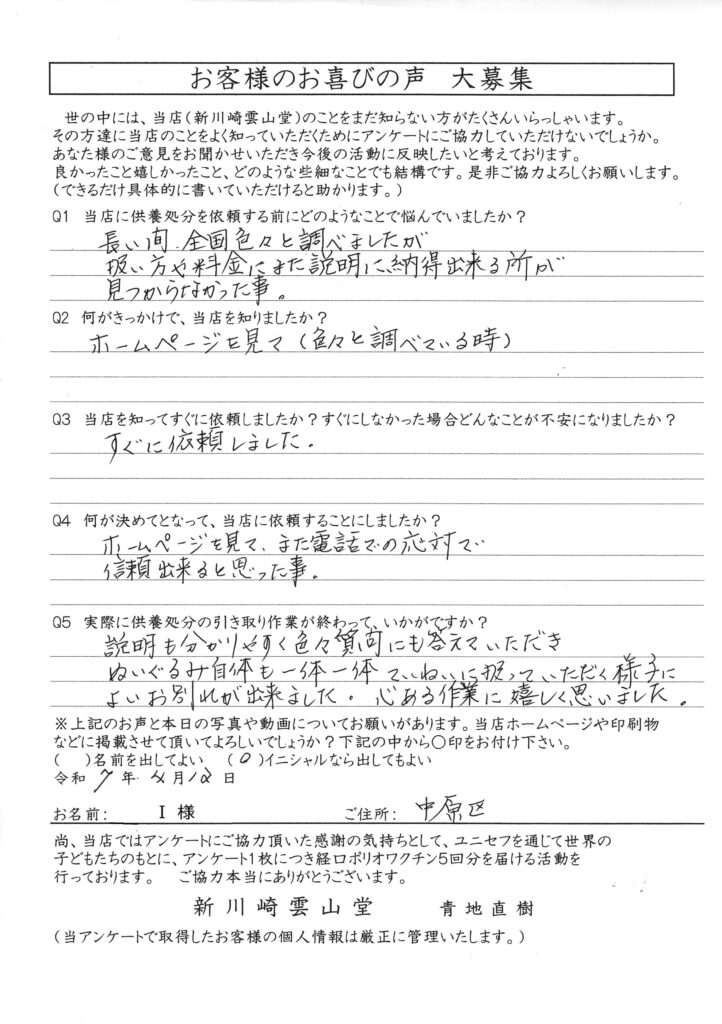 お客様のお喜びの声　大募集
世の中には、当店(新川崎雲山堂)のことをまだ知らない方がたくさんいらっしゃいます。
その方達に当店のことをよく知っていただくためにアンケートにご協力していただけないでしょうか。
あなた様のご意見をお聞かせいただき今後の活動に反映したいと考えております。
良かったこと嬉しかったこと、どのような些細なことでも結構です。是非ご協力よろしくお願いします。
(できるだけ具体的に書いていただけると助かります。)
Q1　当店に供養処分を依頼する前にどのようなことで悩んでいましたか？
長い間、全国色々と調べましたが
扱い方や料金にまた説明に納得出来る所が
見つからなかった事。
Q2　何がきっかけで、当店を知りましたか？
ホームページを見て(色々と調べている時)
Q3　当店を知ってすぐに依頼しましたか？すぐにしなかった場合どんなことが不安になりましたか？
すぐに依頼しました。
Q4　何が決めてとなって、当店に依頼することにしましたか？
ホームページを見て、また電話での応対で
信頼出来ると思った事。
Q5　実際に供養処分の引き取り作業が終わって、いかがですか？
説明も分かりやすく色々質問にも答えていただき
ぬいぐるみ自体も一体一体ていねいに扱っていただく様子に
よいお別れが出来ました。心ある作業に嬉しく思いました。
※上記のお声と本日の写真や動画についてお願いがあります。当店ホームページや印刷物
などに掲載させて頂いてよろしいでしょうか？下記の中から〇印をお付け下さい。
(　)名前を出してよい　(〇)イニシャルなら出してもよい
令和 7 年 4 月 12 日
お名前：　I 様　ご住所：　中原区
尚、当店ではアンケートにご協力頂いた感謝の気持ちとして、ユニセフを通じて世界の
子どもたちのもとに、アンケート1枚につき経口ポリオワクチン5回分を届ける活動を
行っております。　ご協力本当にありがとうございます。
新川崎雲山堂　青地直樹
(当アンケートで取得したお客様の個人情報は厳正に管理いたします。)